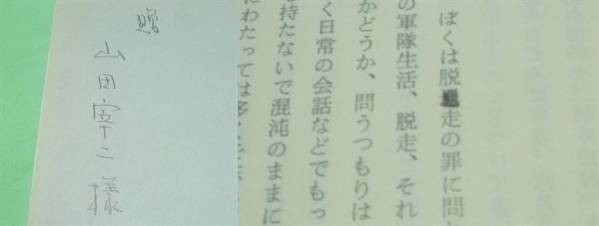 贈
山田宰二様
ぼくは脱走の罪に問
の軍隊生活、脱走、それ
かどうか、問うつもりは
く日常の会話などでもっ
を持たないで混沌のままに
にわたっては多